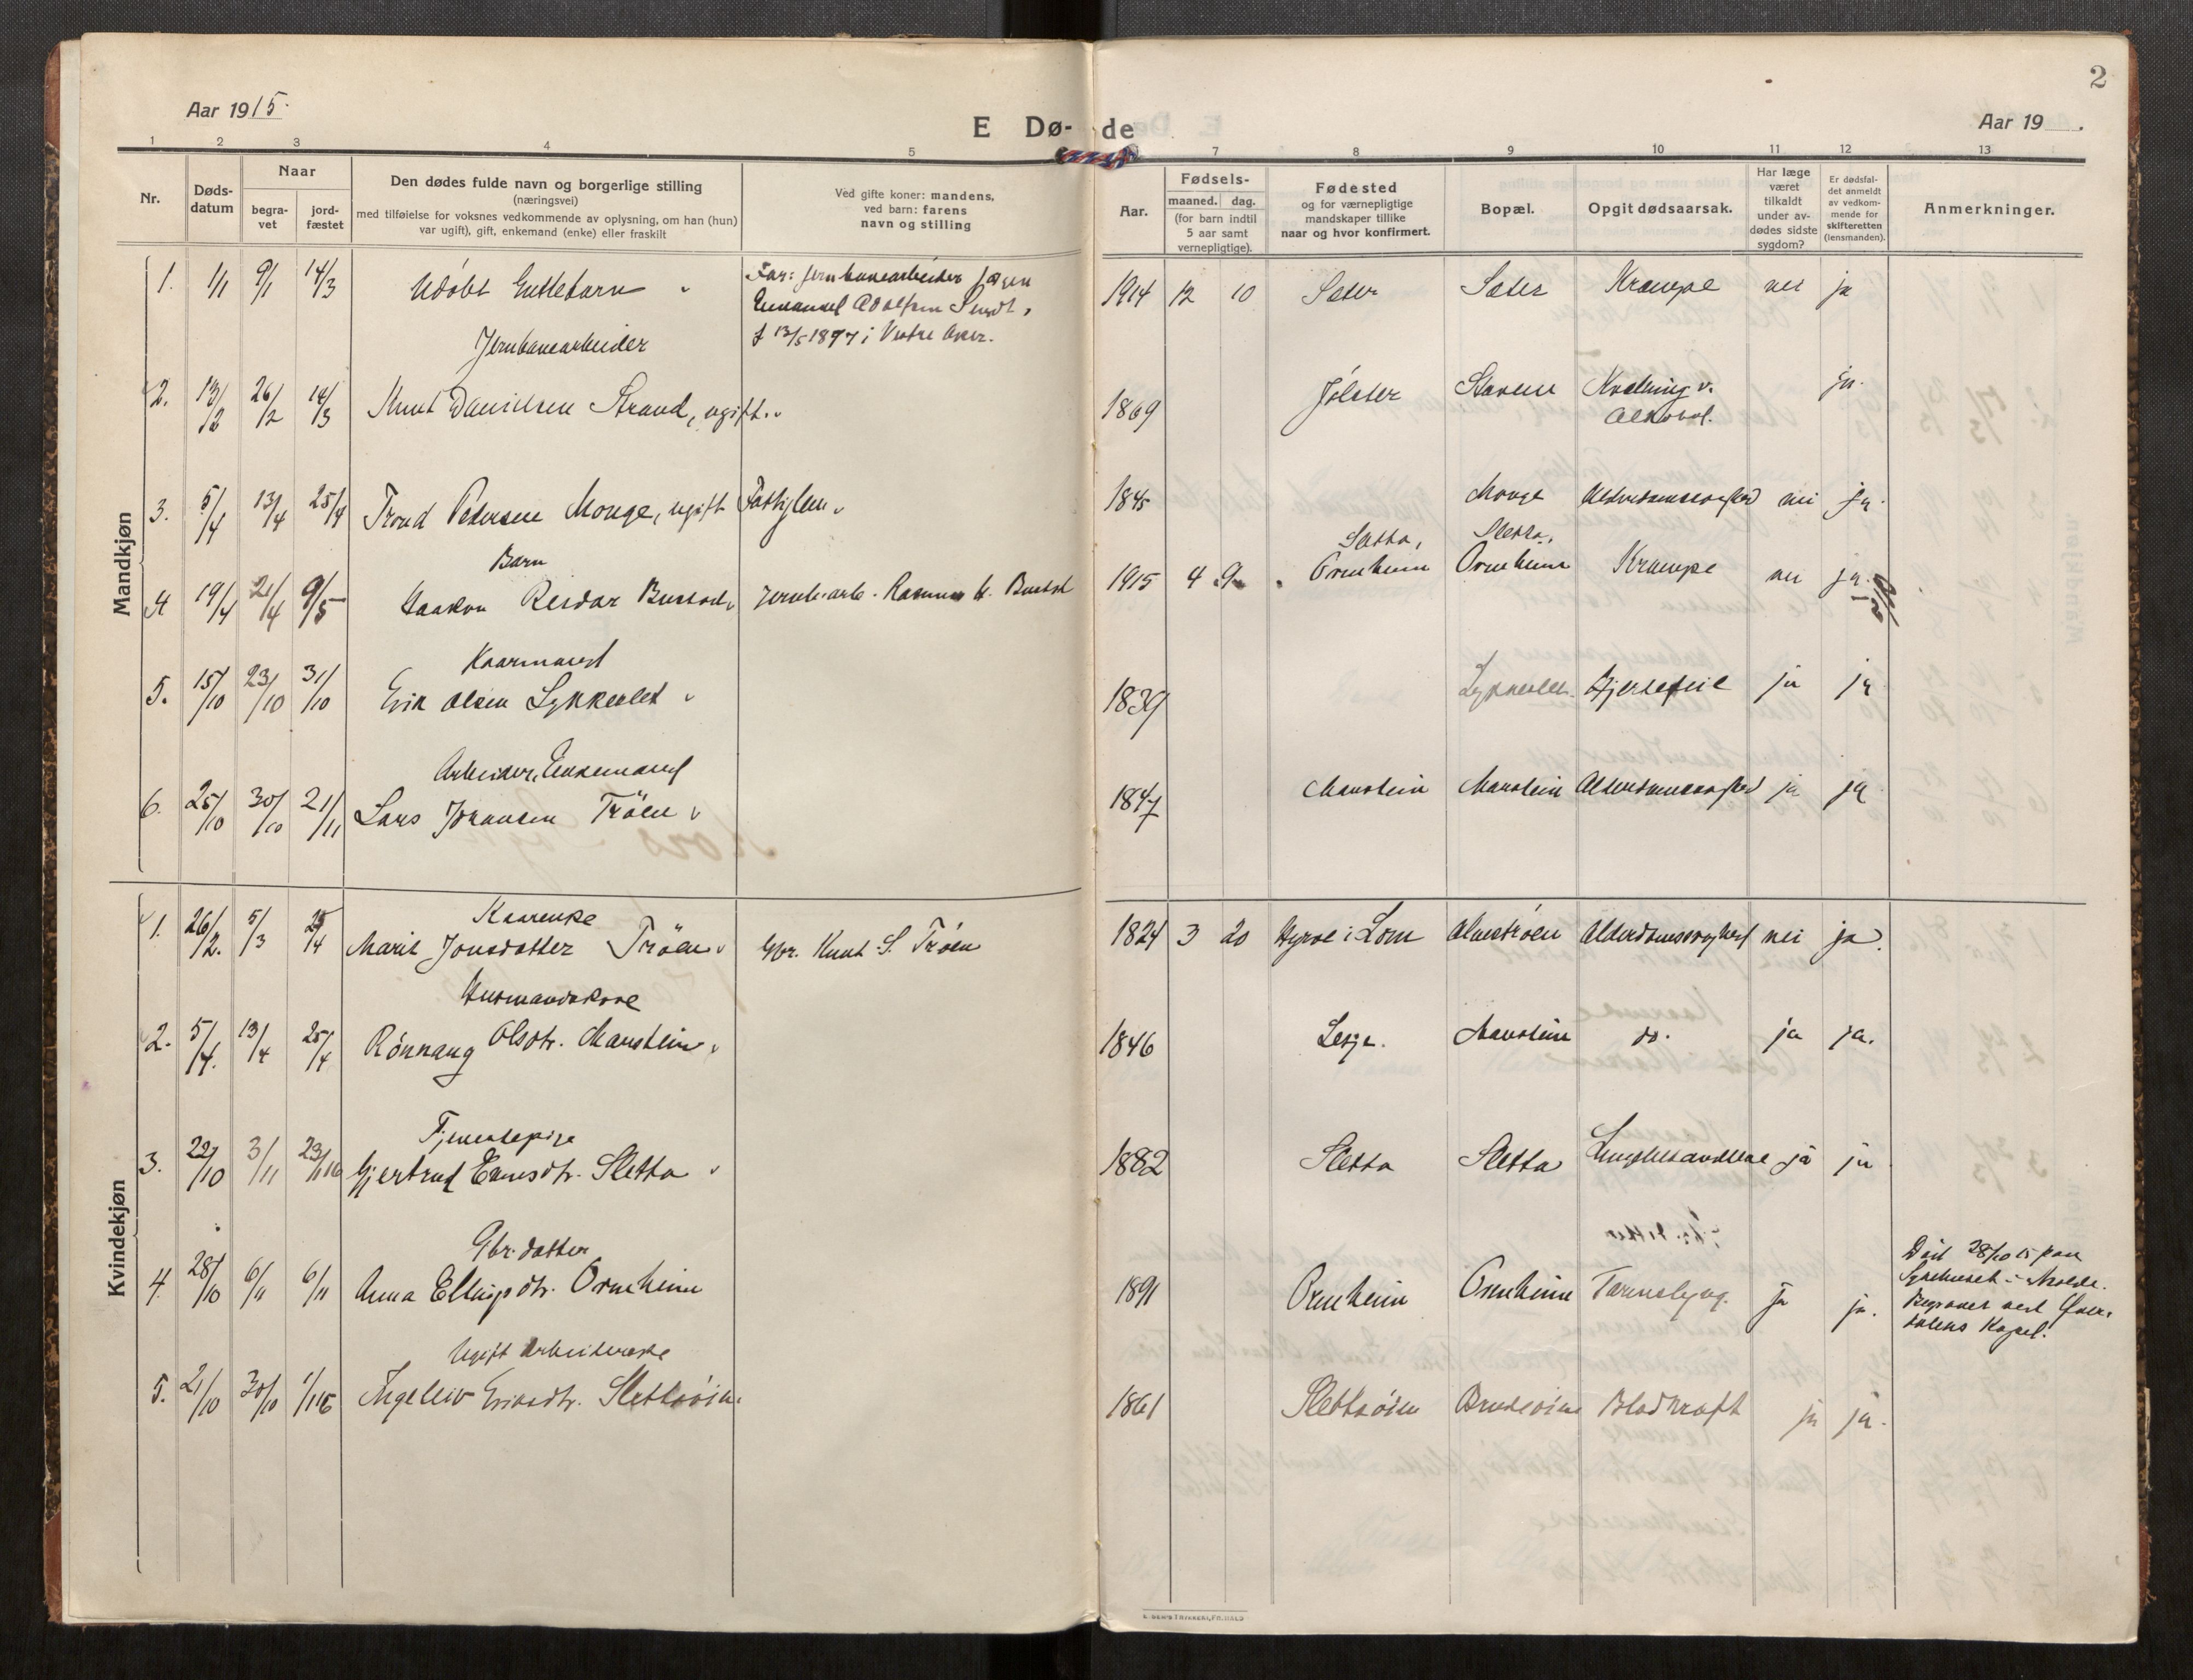 2
Aar 1915.
E Dø-de
Aar 19 .
1 2 3 4 5 7 8 9 10 11 12 13
Nr.
Døds-
datum
Naar
begra-
vet
jord-
fæstet
Den dødes fulde navn og borgerlige stilling
(næringsvei)
med tilføielse for voksnes vedkommende av oplysning, om han (hun)
var ugift), gift, enkemand (enke) eller fraskilt
Ved gifte koner: mandens,
ved barn: farens
navn og stilling
Aar.
Fødsels-
maaned. dag.
(for barn indtil
5 aar samt
vernepligtige).
Fødested
og for værnepligtige
mandskaper tillike
naar og hvor konfirmert.
Bopæl.
Opgit dødsaarsak.
Har læge
været
tilkaldt
under av-
dødes sidste
sygdom?
Er dødsfal-
det anmeldt
av vedkom-
mende for
skifteretten
(lensmanden).
Anmerkninger.
Mandkjøn
Far: Jernbanearbeider
Emanuel Adolfsen
1. 1/1 9/1 14/3 Udøbt Guttebarn 1914 12 10 Sæter Sæter Krampe nei ja
f 13/5 1897 i Vestre Aker.
Jernbanearbeider
2. 13/2 26/2 14/3 Knut Danielsen Strand, ugift. 1869 Jølster Kvælning v. ja.
Alkohol.
3. 5/4 13/4 25/4 Trond Pedersen Monge, ugift 1845 Monge Alderdomssvaghed nei ja.
Barn Sletta, Sletta,
4 19/4 21/4 9/5 Haakon Reidar Bustad Jernb.arb. Rasmus Bustad 1915 4 9 Ormheim Ormheim Krampe nei ja.
Kaarmand
5. 15/10 23/10 31/10 Erik Olsen Lykkeslet 1839 Lykkeslet Hjertefeil ja ja
Arbeider, Enkemand
6. 25/10 30/10 21/11 Lars Johansen Trøen 1847 Marstein Marstein Alderdomssvaghed ja ja
Kvindekjøn
Kaarenke
1. 26/2. 5/3 25/4 Marit Jonsdatter Trøen Gbr. Knut S. Trøen 1824 3 20 i Lom Alderdomssvaghed nei ja.
Husmandskone
2. 5/4. 13/4 25/4 Rønnaug Olsdtr. Marstein 1846 Lesje. Marstein do. ja ja.
Tjenestepige
3. 22/10 3/11 23/11 16 Gjertrud Sletta 1882 Sletta Sletta ja ja
Gbr. datter
4. 28/10 6/11 6/11 Anna Ellingsdtr. Ormheim 1891 Ormheim Ormheim Tarmslyng. ja ja.
Død 28/10 15 paa
Sykehuset i Molde.
Begravet ved Øver-
dalens Kapel.
Ugift arbeiderske
5. 21/10 30/10 1/1 16 Ingeleiv Eriksdtr. 1861 Blodkræft ja ja.